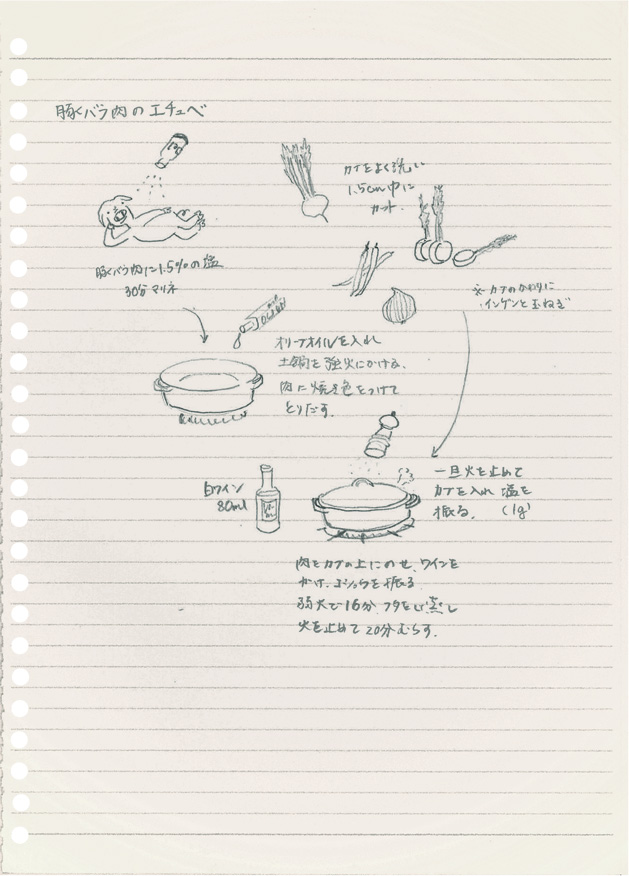 豚バラ肉のエチュベ
カブをよく洗い
1.5cm巾に
カット.
豚バラ肉に1.5%の塩
30分マリネ
※カブのかわりに
インゲンと玉ねぎ
オリーブオイルを入れ
土鍋を強火にかける.
肉に焼き色をつけて
とりだす.
一旦火を止めて
カブを入れ 塩を
振る. (1g)
白ワイン
80ml
肉をカブの上にのせ、ワインを
かけ、コショウを振る
弱火で16分 フタをし蒸し
火を止めて20分むらす.